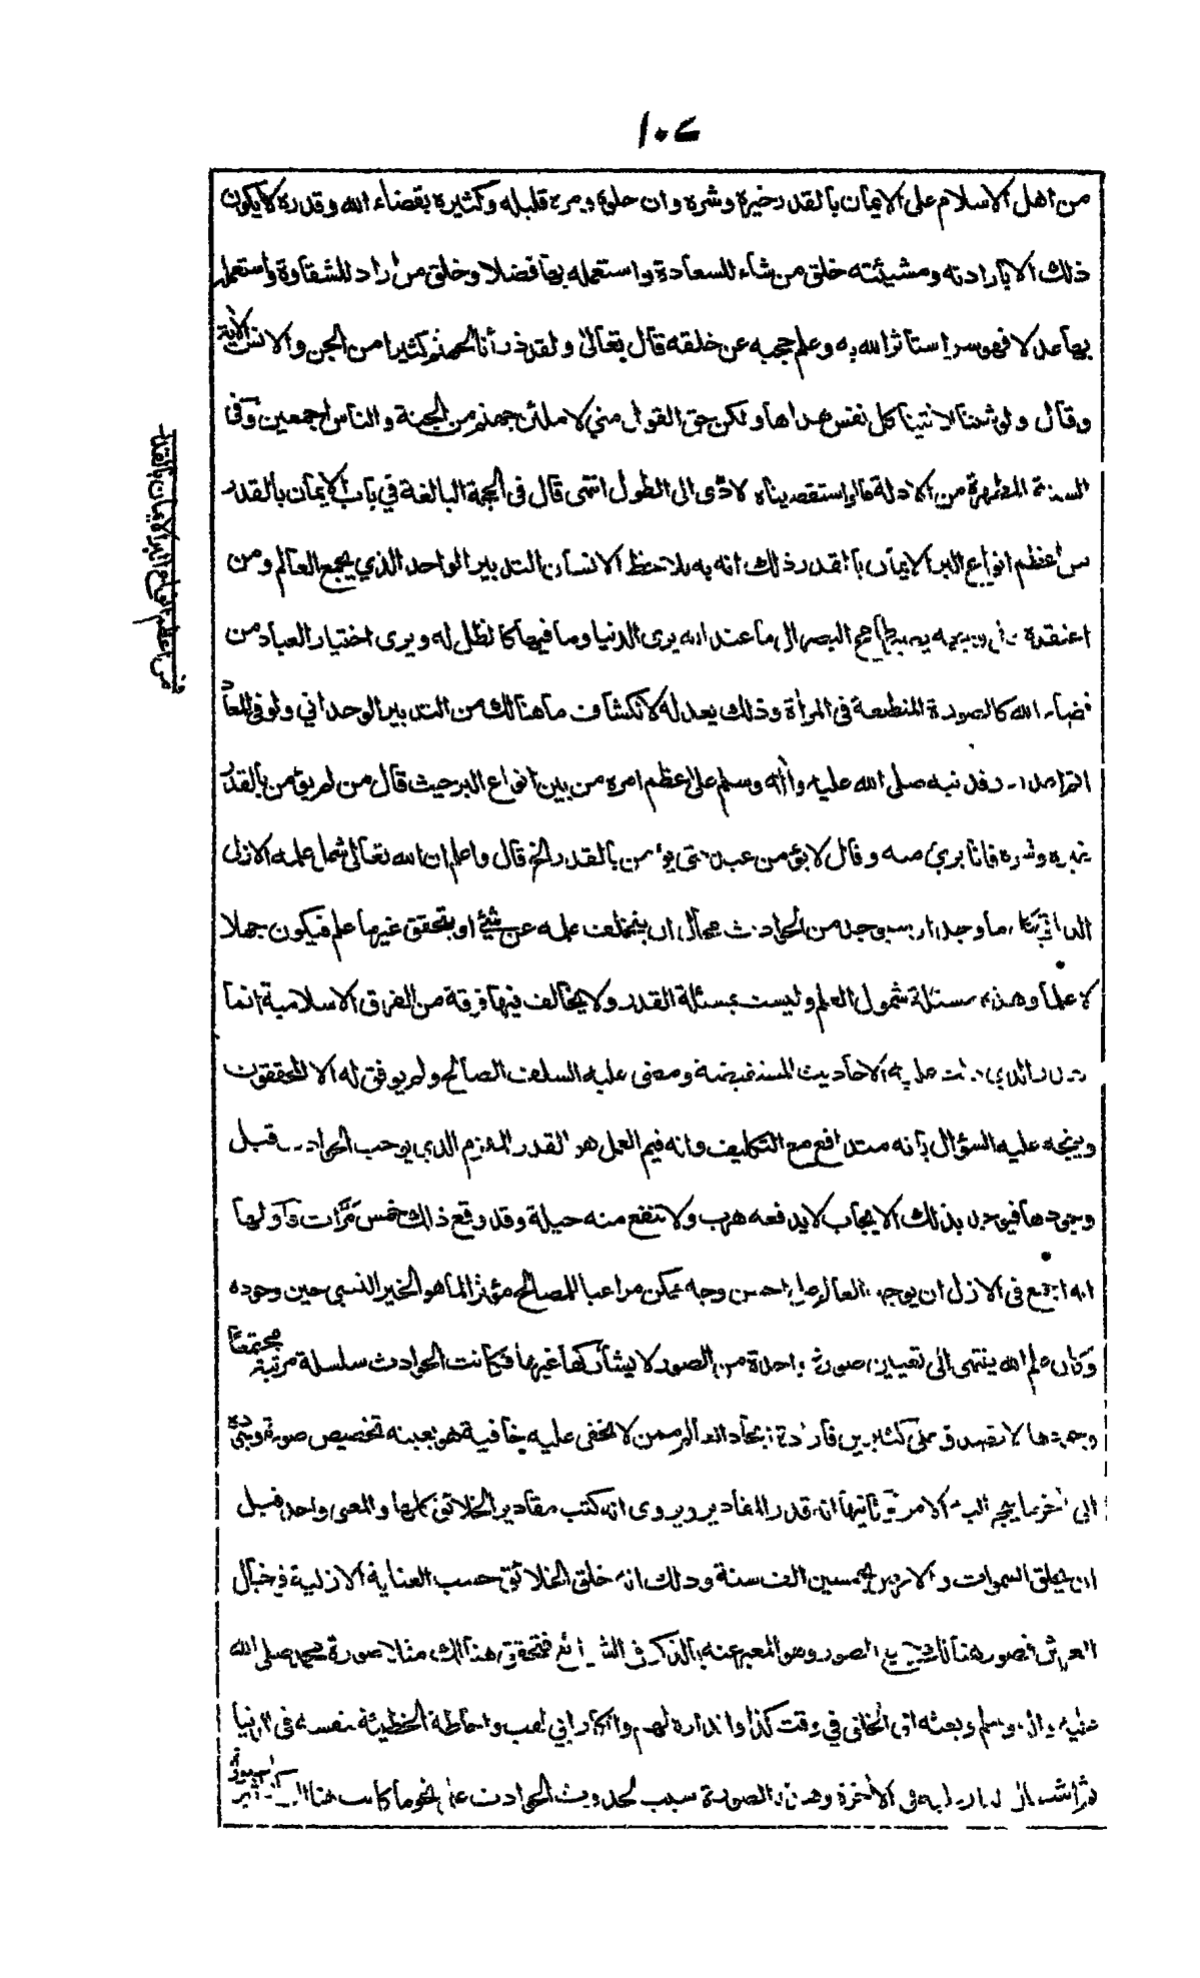 من اهل الاسلام على الايمان بالقدر خيره وشره وان حلوه ومره قليله وكثيره بقضاء الله وقدره لا يكون
ذلك الا بارادته ومشيئته خلق من شاء للسعادة واستعمله بها فضلا وخلق من اراد للشقاوة واستعمله
بها عدلا فهو سر استأثر الله به وعلم حجبه عن خلقه قال تعالى ولقد ذرأنا لجهنم كثيرا من الجن والانس الآية
وقال ولو شئنا لاتينا كل نفس هداها ولكن حق القول مني لاملئن جهنم من الجنة والناس اجمعين وفى
السنة المطهرة من الادلة مالو استقصيناه لادى الى الطول انتهى قال فى الحجة البالغة في باب الايمان بالقدر
من اعظم انواع البر الايمان بالقدر وذلك انه به يلاحظ الانسان التدبير الواحد الذي يجمع العالم ومن
اعتقده على وجهه يصير طامح البصر الى ما عند الله يرى الدنيا وما فيها كالظل له ويرى اختيار العباد من
قضاء الله كالصورة المنطبعة فى المرأة وذلك يعد له لانكشاف ما هنالك من التدبير الوحداني ولو فى المعاد
وقد نبه صلى الله عليه وآله وسلم على عظم امره من بين انواع البر حيث قال من لم يؤمن بالقدر
خيره وشره فانا برئ منه وقال لا يؤمن عبد حتى يؤمن بالقدر الخ قال واعلم ان الله تعالى شمل علمه الازلي
الذاتي كل ما وجد او سيوجد من الحوادث محال ان يتخلف علمه عن شئ او يتحقق غير ما علم فيكون جهلا
لا علما وهذه مسئلة شمول العلم وليست بمسئلة القدر ولا يخالف فيها فرقة من الفرق الاسلامية انما
القدر الذي دلت عليه الاحاديث المستفيضة ومضى عليه السلف الصالح ولم يوفق له الا المحققون
ويتجه عليه السؤال بانه متدافع مع التكليف وانه فيم العمل هو القدر الملزم الذي يوجب الحوادث قبل
وجودها فيوجد بذلك الايجاب لا يدفعه هرب ولا تنفع منه حيلة وقد وقع ذلك خمس مرات اولها
انه اجمع فى الازل ان يوجد العالم على احسن وجه ممكن مراعيا للمصالح مؤثرا لما هو الخير النسبي حين وجوده
وكان علم الله ينتهى الى تعيين صورة واحدة من الصور لا يشاركها غيرها فكانت الحوادث سلسلة مرتبة مجتمعا
وجودها لا تصدق على كثيرين فارادة ايجاد العالم ممن لا تخفى عليه خافية هو بعينه تخصيص صورة وجوده
الى اخر ما ينجر اليه الامر وثانيها انه قدر المقادير ويروى انه كتب مقادير الخلائق كلها والمعنى واحد قبل
ان يخلق السموات والارض بخمسين الف سنة وذلك انه خلق الخلائق حسب العناية الازلية في خيال
العرش فصور هنالك جميع الصور وهو المعبر عنه بالذكر فى الشرائع فتحقق هنالك مثلا صورة محمد صلى الله
عليه وآله وسلم وبعثه الى الخلق فى وقت كذا وانذاره لهم وانكار ابي لهب واحاطة الخطيئة بنفسه فى الدنيا
ثم اشتعال النار عليه فى الآخرة وهذه الصورة سبب لحدوث الحوادث على نحو ما كانت هنالك
من اعظم انواع البر الايمان بالقدر